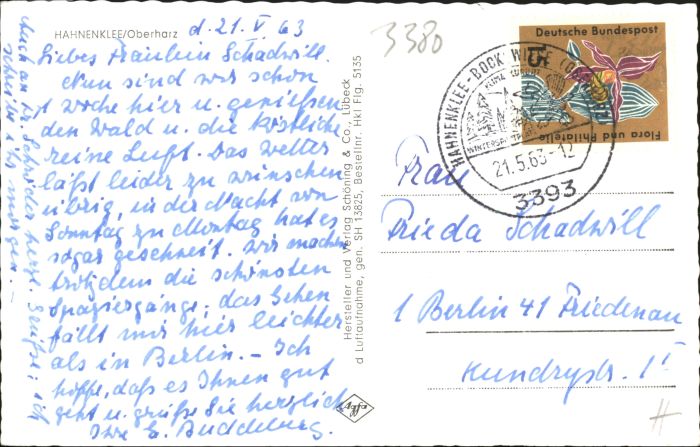 HAHNENKLEE/Oberharz
d. 21. V. 63
Liebes Fräulein Schadwill.
Nun sind wir schon
1 Woche hier u. genießen
den Wald u. die köstliche
reine Luft. Das Wetter
läßt leider zu wünschen
übrig, in der Nacht von
Sonntag zu Montag hat es
sogar geschneit. Wir machen
trotzdem die schönsten
Spaziergänge, das Gehen
fällt mir hier leichter
als in Berlin. – Ich
hoffe, daß es Ihnen gut
geht u. grüße Sie herzlich
Ihre E. Buddeburg.
Auch an Dr. Schröder herzl. Grüße; ich
schreibe morgen –
Hersteller und Verlag Schöning & Co., Lübeck
d Luftaufnahme, gen. SH 13825, Bestellnr. Hkl Flg. 5135
Agfa
3380
Deutsche Bundespost
15
Flora und Philatelie
HAHNENKLEE-BOCKSWIESE
WINTERSPORT
21.5.63-12
3393
Frau
Frieda Schadwill
1 Berlin 41 Friedenau
Kundrystr. 1